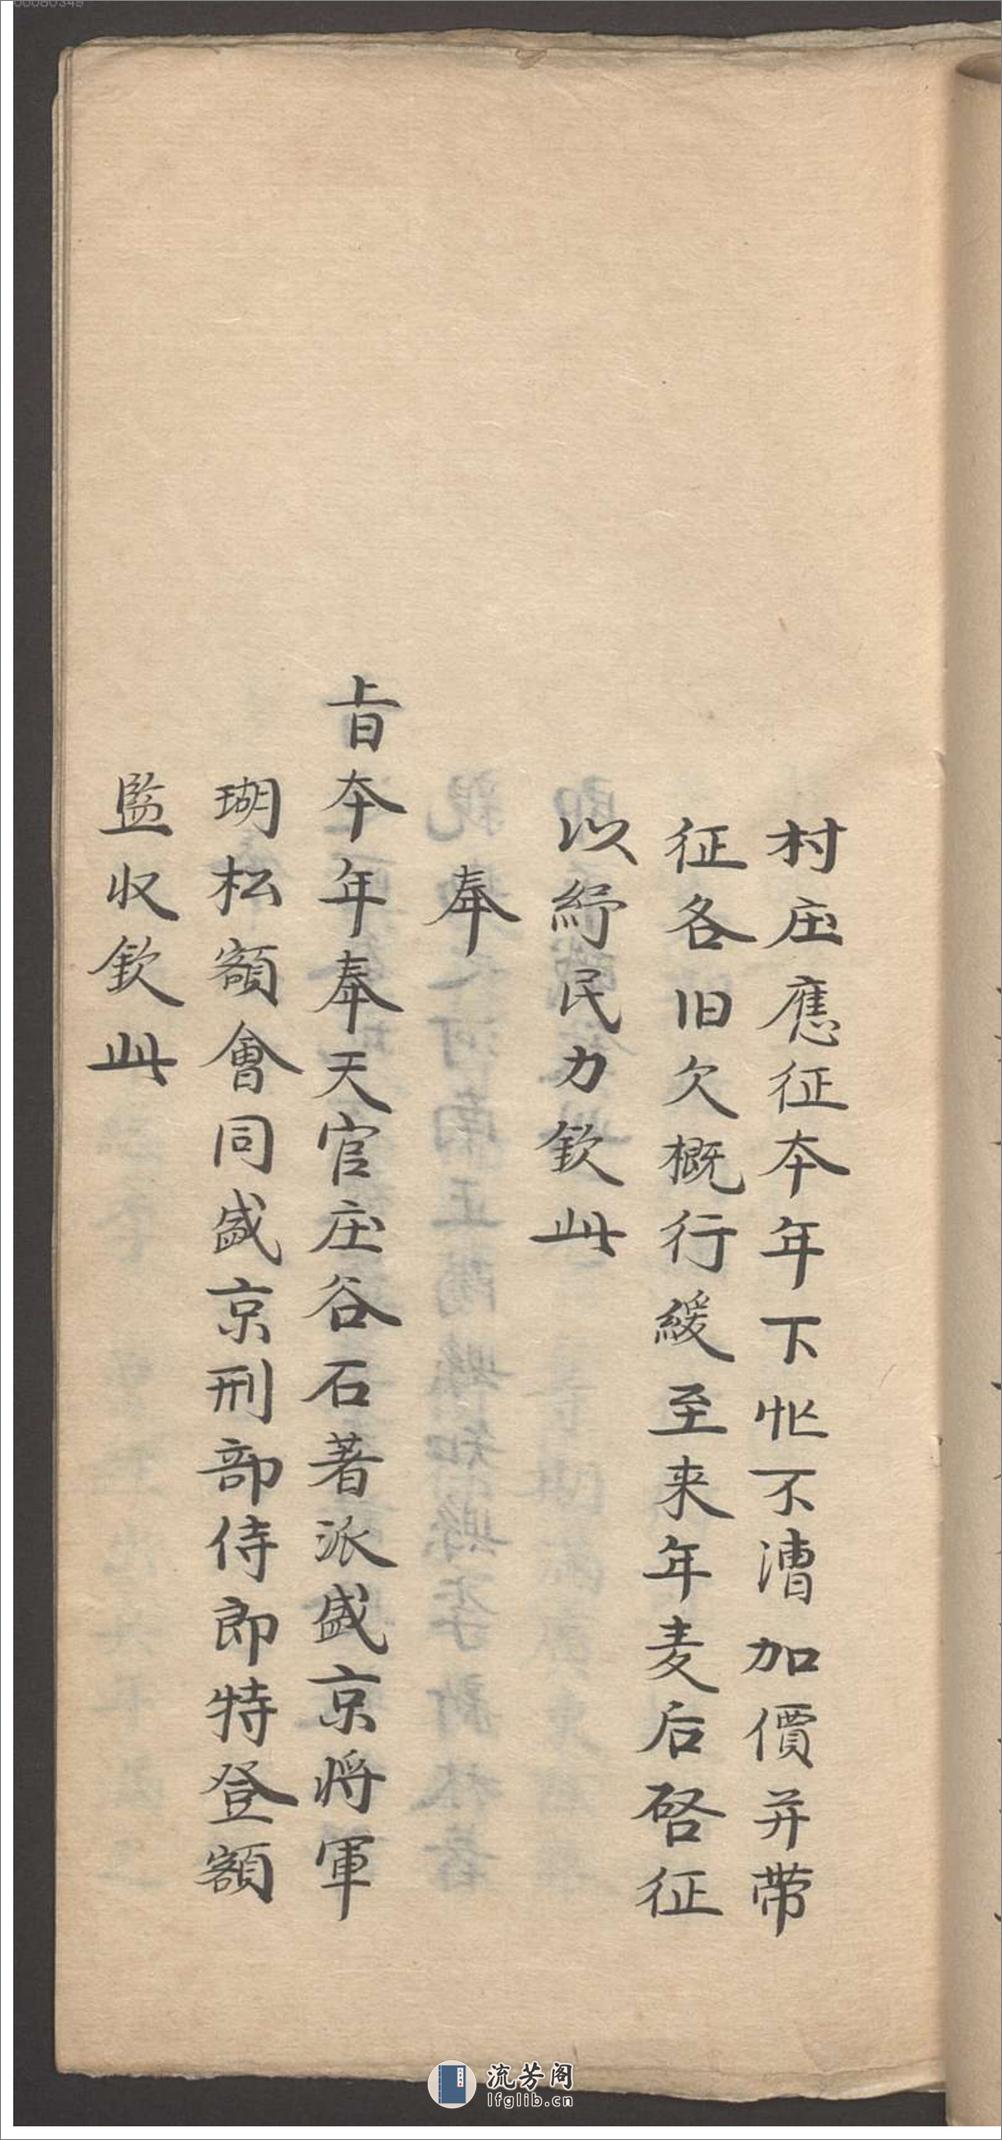 村庄應征本年下忙不漕加價并带
征各旧欠概行緩至来年麦后啓征
以紓民力欽此
奉
旨本年奉天官庄谷石著派盛京将軍
瑚松額會同盛京刑部侍郎特登額
監收欽此
流芳阁
lfglib.cn